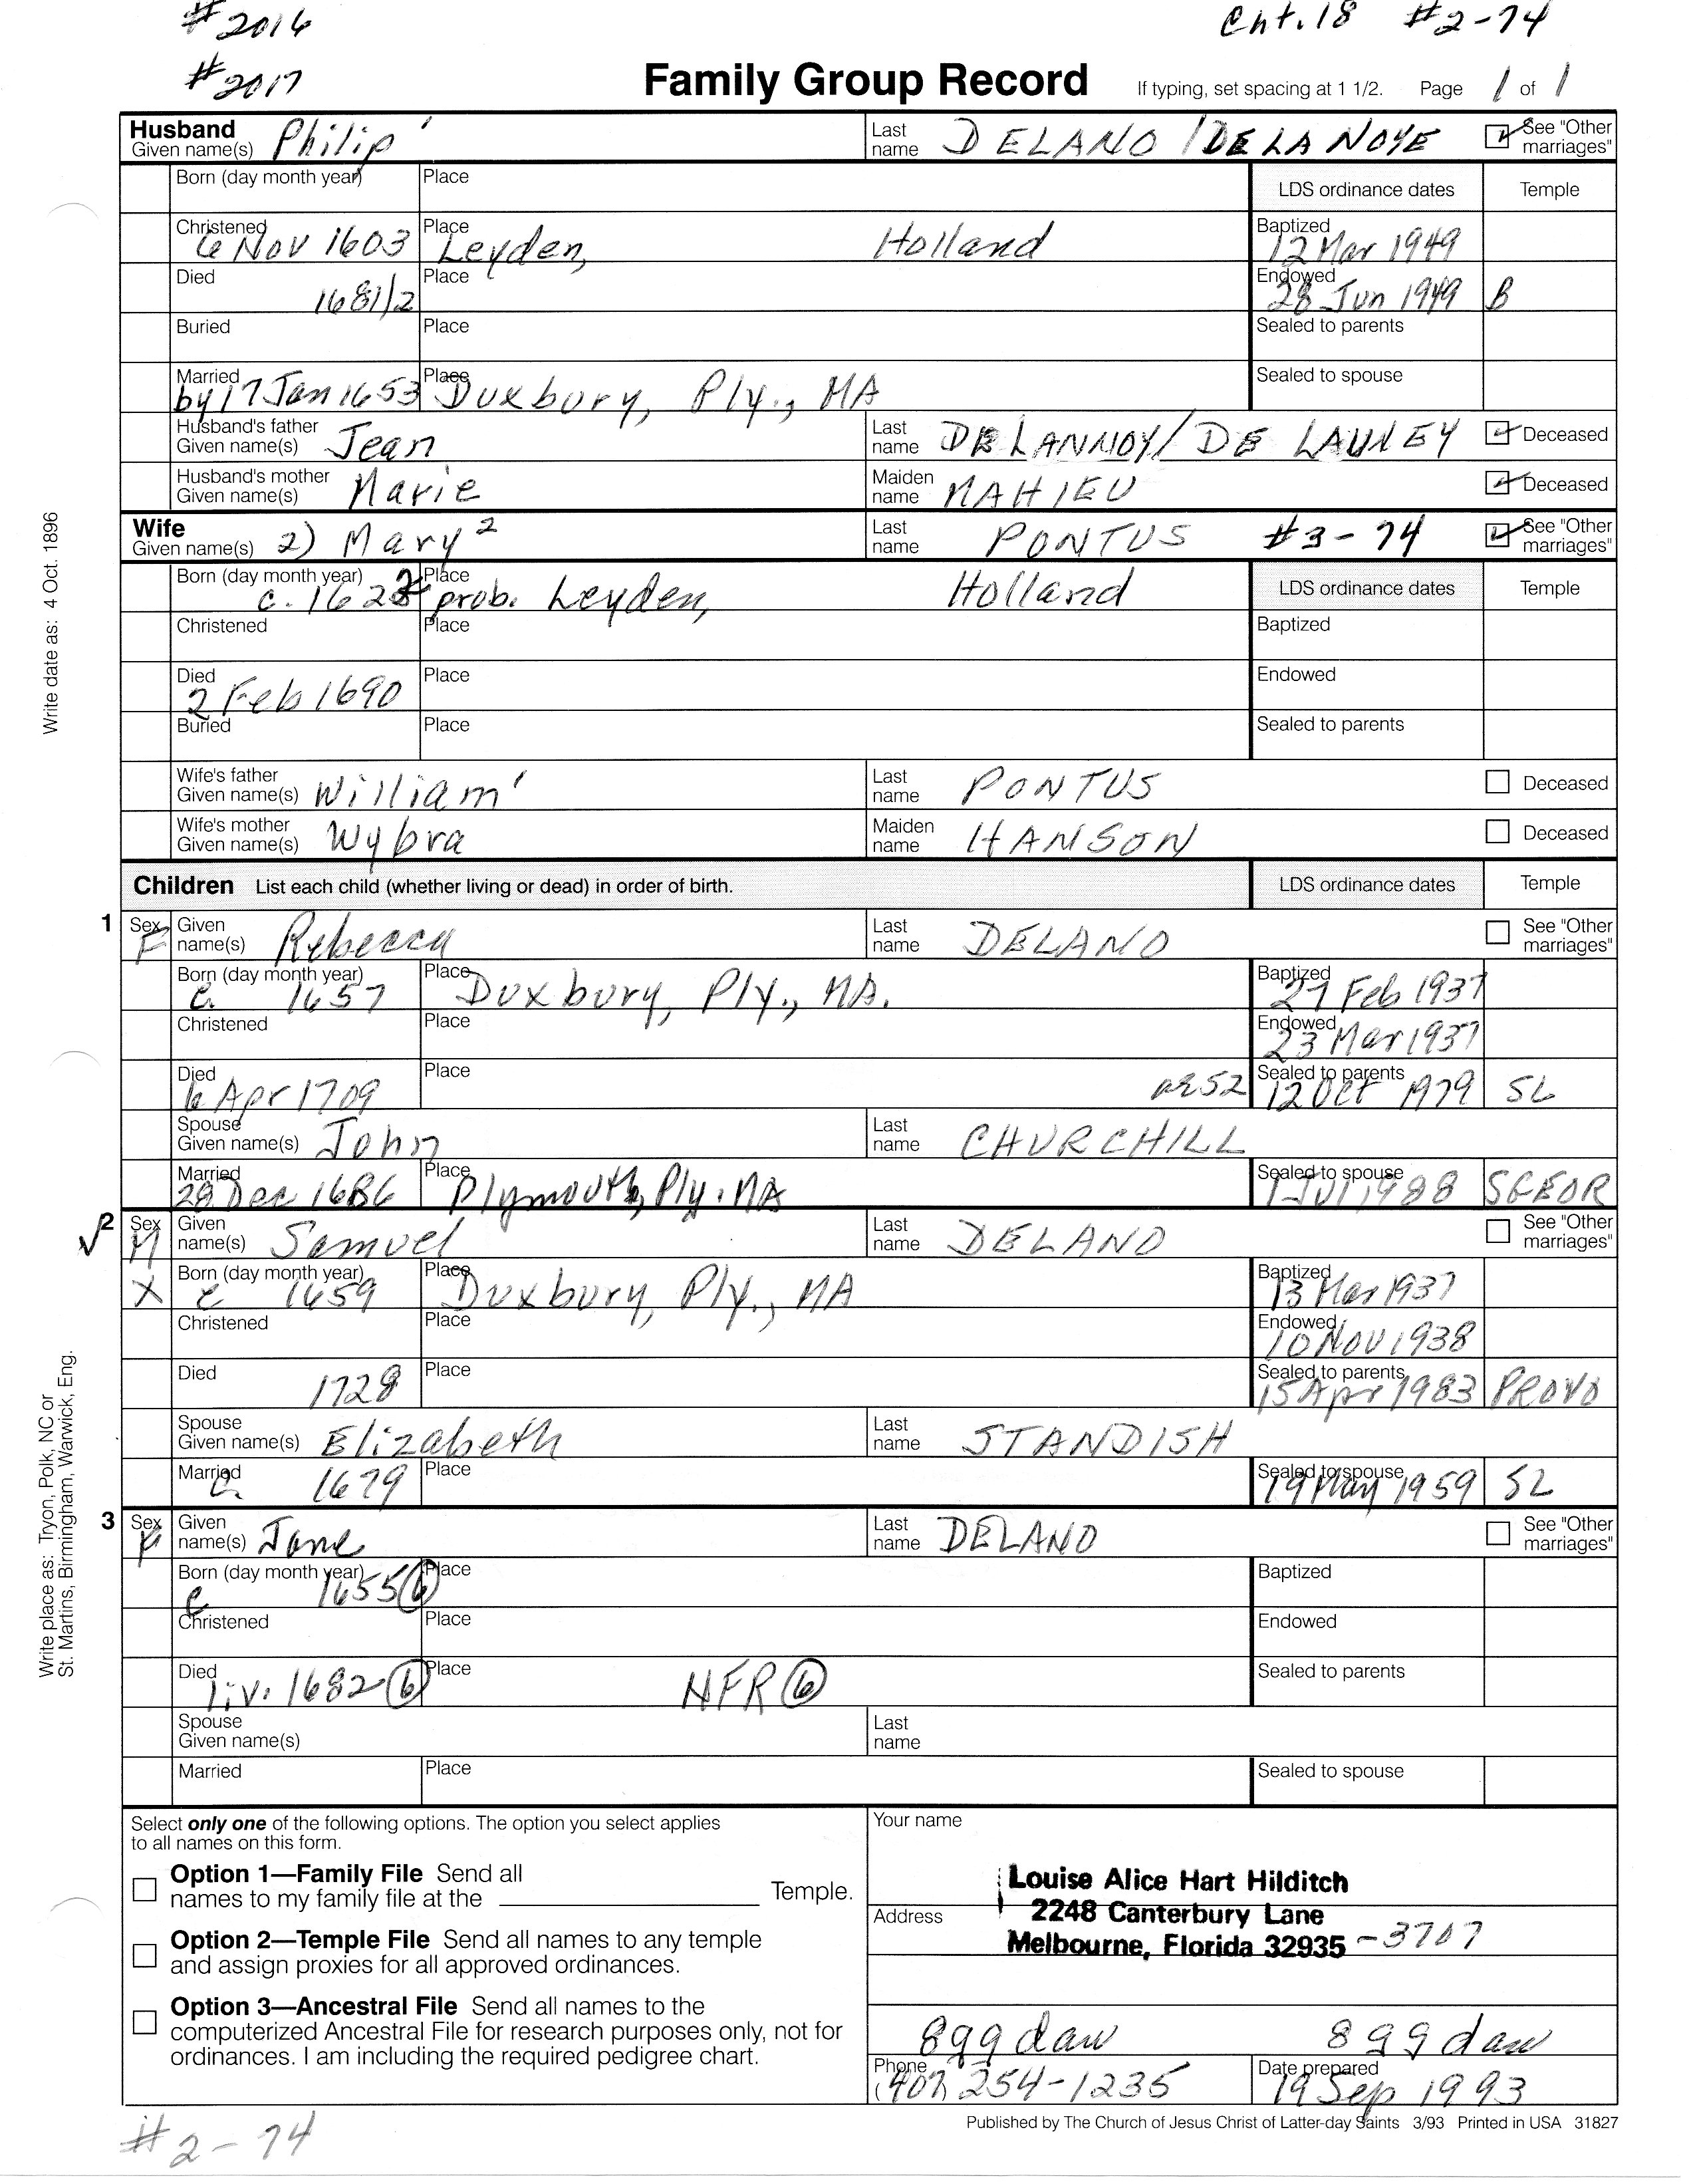 #2016 Cht.18 #2-74
#2017 Family Group Record If typing, set spacing at 1 1/2. Page 1 of 1
Husband Given name(s) Philip' Last name DELANO / DE LA NOYE See "Other marriages"
Born (day month year) Place LDS ordinance dates Temple
Christened 6 Nov 1603 Place Leyden, Holland Baptized 12 Mar 1949
Died 1681/2 Place Endowed 28 Jun 1949 B
Buried Place Sealed to parents
Married by 17 Jan 1653 Place Duxbury, Ply., MA Sealed to spouse
Husband's father Given name(s) Jean Last name DE LANNOY/ DE LAUNEY Deceased
Husband's mother Given name(s) Marie Maiden name MAHIEU Deceased
Wife Given name(s) 2) Mary 2 Last name PONTUS #3-74 See "Other marriages"
Born (day month year) c. 1622 Place prob. Leyden, Holland LDS ordinance dates Temple
Christened Place Baptized
Died 2 Feb 1690 Place Endowed
Buried Place Sealed to parents
Wife's father Given name(s) William' Last name PONTUS Deceased
Wife's mother Given name(s) Wybra Maiden name HANSON Deceased
Children List each child (whether living or dead) in order of birth. LDS ordinance dates Temple
1 Sex F Given name(s) Rebecca Last name DELANO See "Other marriages"
Born (day month year) c. 1657 Place Duxbury, Ply., MA. Baptized 27 Feb 1937
Christened Place Endowed 23 Mar 1937
Died 6 Apr 1709 Place ae52 Sealed to parents 12 Oct 1979 SL
Spouse Given name(s) John Last name CHURCHILL
Married 28 Dec 1686 Place Plymouth, Ply. MA Sealed to spouse 1 Jul 1988 SGEOR
2 Sex M Given name(s) Samuel Last name DELANO See "Other marriages"
X Born (day month year) c 1659 Place Duxbury, Ply., MA Baptized 13 Mar 1937
Christened Place Endowed 10 Nov 1938
Died 1728 Place Sealed to parents 15 Apr 1983 PROVO
Spouse Given name(s) Elizabeth Last name STANDISH
Married c. 1679 Place Sealed to spouse 19 May 1959 SL
3 Sex F Given name(s) Jane Last name DELANO See "Other marriages"
Born (day month year) c 1655 6 Place Baptized
Christened Place Endowed
Died liv. 1682 6 Place NFR 6 Sealed to parents
Spouse Given name(s) Last name
Married Place Sealed to spouse
Write date as: 4 Oct. 1896
Write place as: Tryon, Polk, NC or
St. Martins, Birmingham, Warwick, Eng.
Select only one of the following options. The option you select applies
to all names on this form.
Option 1—Family File Send all
names to my family file at the Temple.
Option 2—Temple File Send all names to any temple
and assign proxies for all approved ordinances.
Option 3—Ancestral File Send all names to the
computerized Ancestral File for research purposes only, not for
ordinances. I am including the required pedigree chart.
Your name
Louise Alice Hart Hilditch
Address 2248 Canterbury Lane
Melbourne, Florida 32935 -3707
899 daw 899 daw
Phone (407) 254-1235 Date prepared 19 Sep 1993
Published by The Church of Jesus Christ of Latter-day Saints 3/93 Printed in USA 31827
#2-74